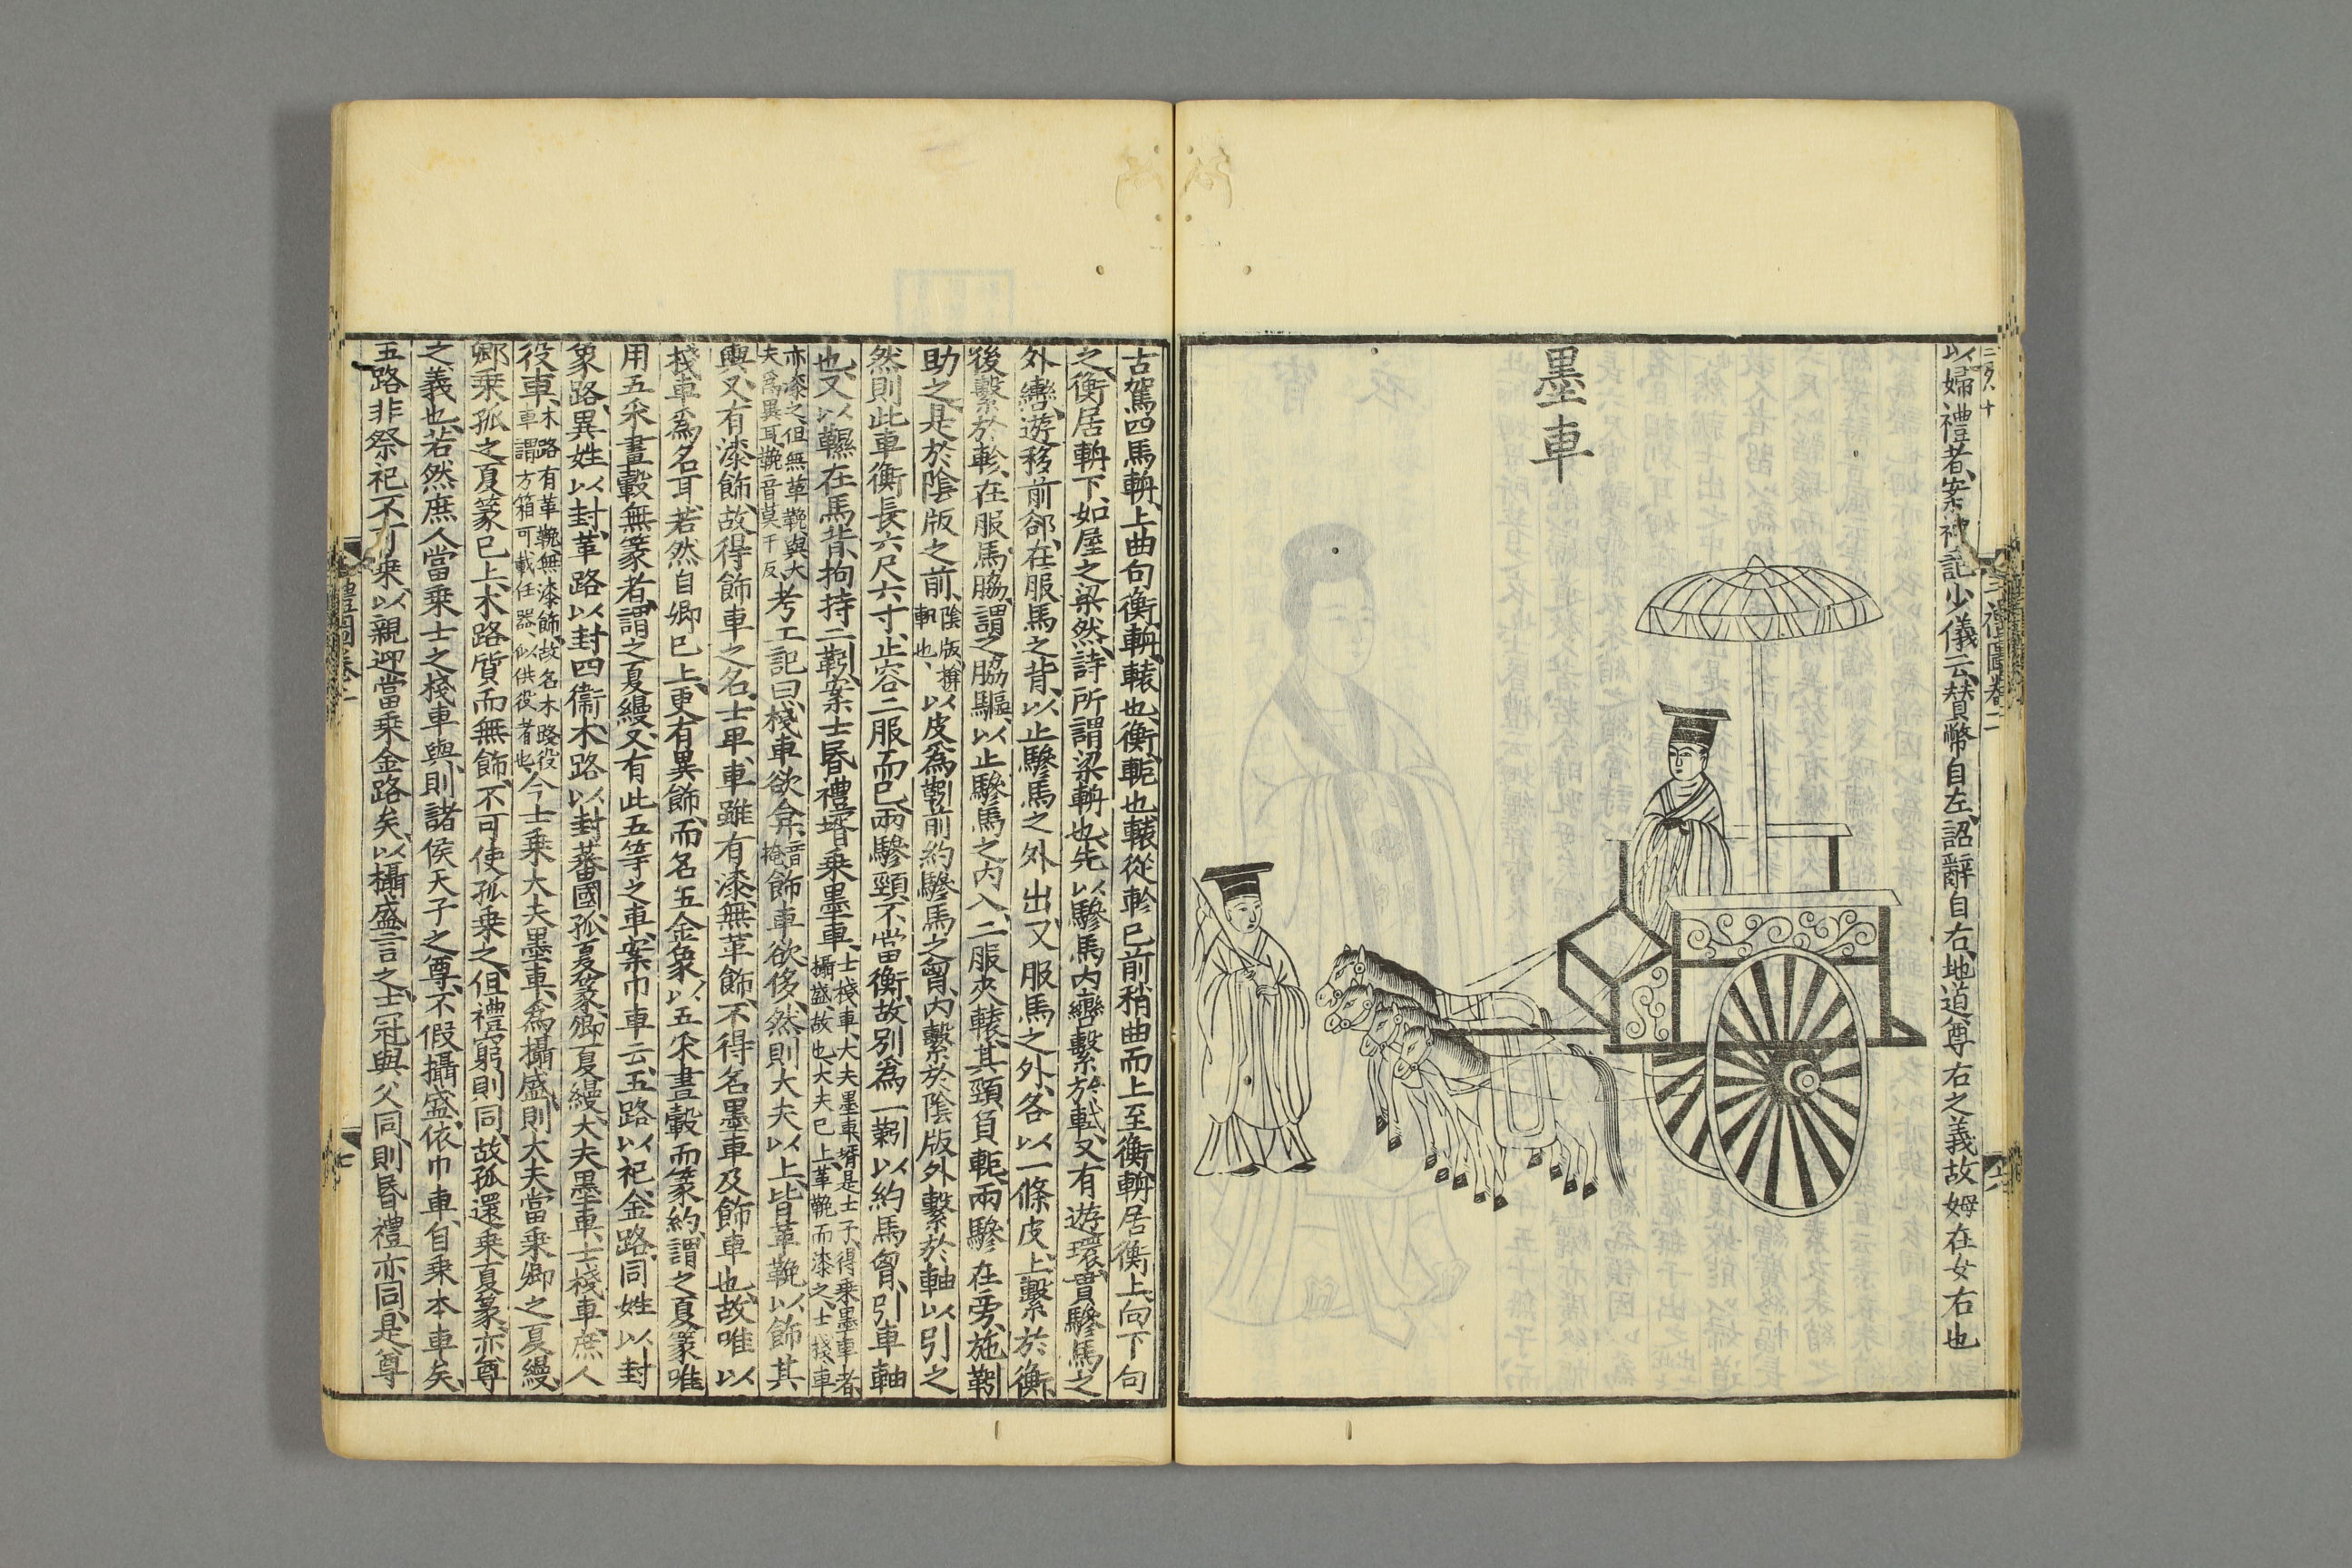 以婦禮者案禮記少儀云贊幣自左詔辭自右地道尊右之義故姆在女右也
墨車
三禮圖卷二
古駕四馬輈上曲句衡輈轅也衡軛也轅從軫已前稍曲而上至衡輈居衡上向下句
之衡居輈下如屋之梁然詩所謂梁輈也先以驂馬内轡繫於軾又有遊環貫驂馬之
外轡遊移前郤在服馬之背以止驂馬之外出又服馬之外各以一條皮上繫於衡
後繫於軫在服馬脇謂之脇驅以止驂馬之内入二服夾轅其頸負軛兩驂在旁施靷
助之是於陰版之前陰版揜軓也以皮為靷前約驂馬之胷内繫於陰版外繫於軸以引之
然則此車衡長六尺六寸止容二服而已兩驂頸不當衡故别為一靷以約馬胷引車軸
也又以韅在馬背拘持二靷案士昏禮壻乗墨車士棧車大夫墨車壻是士子得乗墨車者攝盛故也大夫已上革鞔而漆之士棧車
亦漆之但無革鞔與大夫為異耳鞔音莫干反考工記曰棧車欲弇音掩飾車欲侈然則大夫以上皆革鞔以飾其
輿又有漆飾故得飾車之名士卑車雖有漆無革飾不得名墨車及飾車也故唯以
棧車為名耳若然自卿已上更有異飾而名玉金象以五采畫轂而篆約謂之夏篆唯
用五采畫轂無篆者謂之夏縵又有此五等之車案巾車云玉路以祀金路同姓以封
象路異姓以封革路以封四衞木路以封蕃國孤夏篆卿夏縵大夫墨車士棧車庶人
役車木路有革鞔無漆飾故名木路役車謂方箱可載任器以供役者也今士乗大夫墨車為攝盛則大夫當乗卿之夏縵
卿乗孤之夏篆已上木路質而無飾不可使孤乗之但禮窮則同故孤還乗夏篆亦尊
之義也若然庶人當乗士之棧車與則諸侯天子之尊不假攝盛依巾車自乗本車矣
五路非祭祀不可乗以親迎當乗金路矣以攝盛言之士冠與父同則昏禮亦同是尊